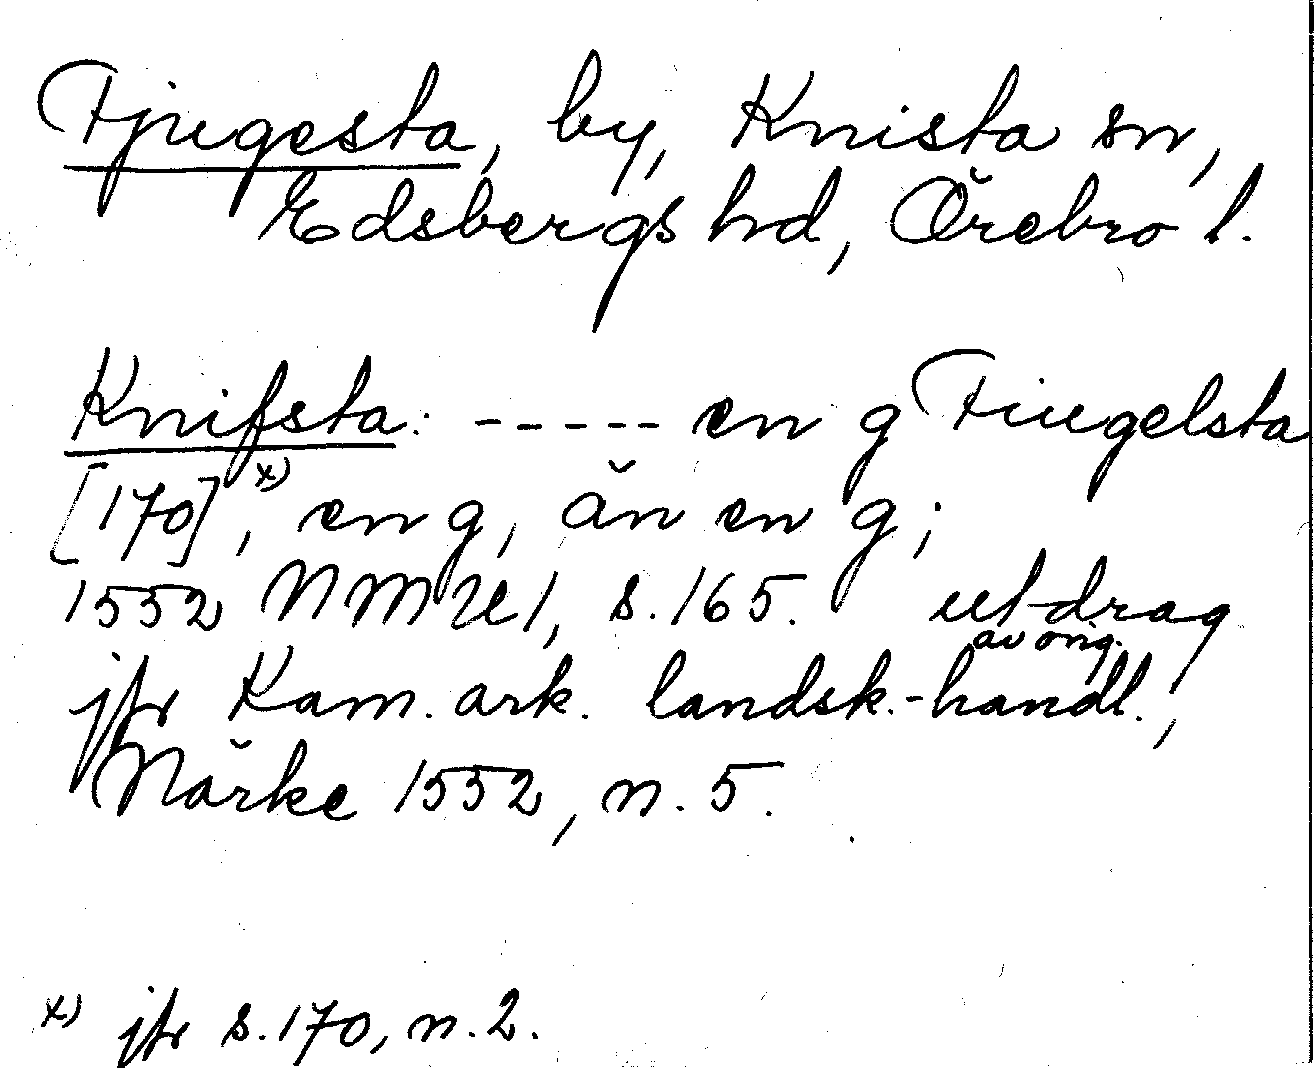 Fjugesta, by, Knista sn,
Edsbergs hd, Örebro l.
Knifsta: ----- en g Fiugelsta
[170]x), en g, än en g;
1552 NMU1, s.165. utdrag
av orig.
jfr Kam. ark. landsk.-handl.,
Närke 1552, n. 5.
x) jfr s.170, n.2.